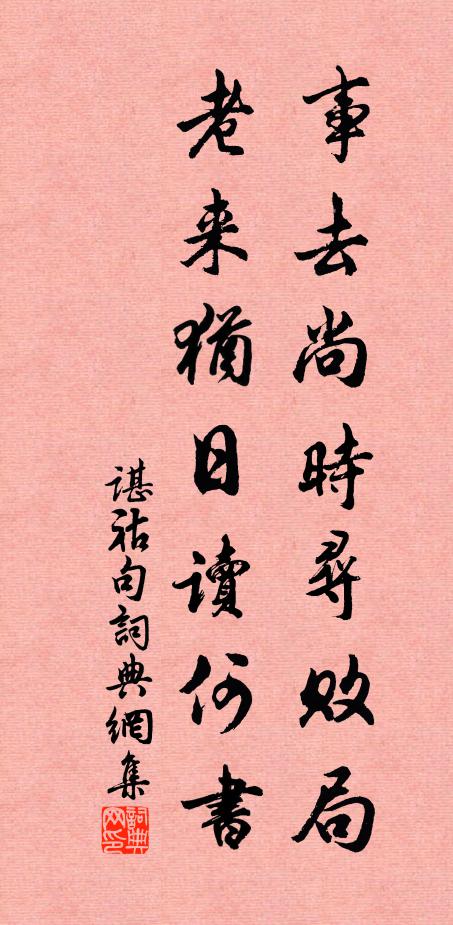 事去尚時尋敗局
老来猶日讀何書
谌祜句詞典網集
詞典網印